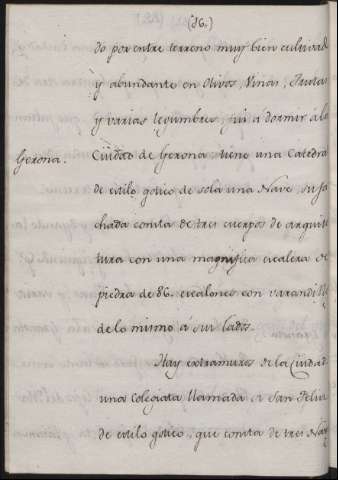 (36.)
do por entre terreno muy bien cultivad
y abundante en Olivos, Viñas, Frutas
y varias legumbres, fui a dormir á la
Gerona. Ciudad de Gerona, tiene una Catedra
de estilo gotico de sola una Nave, su fa
chada consta de tres cuerpos de arquitec
tura con una magnifica escalera de
piedra de 86. escalones con varandill
de lo mismo á sus lados.
Hay extramuros de la Ciudad
una Colegiata llamada a San Feliu
de estilo gotico, que consta de tres Nav